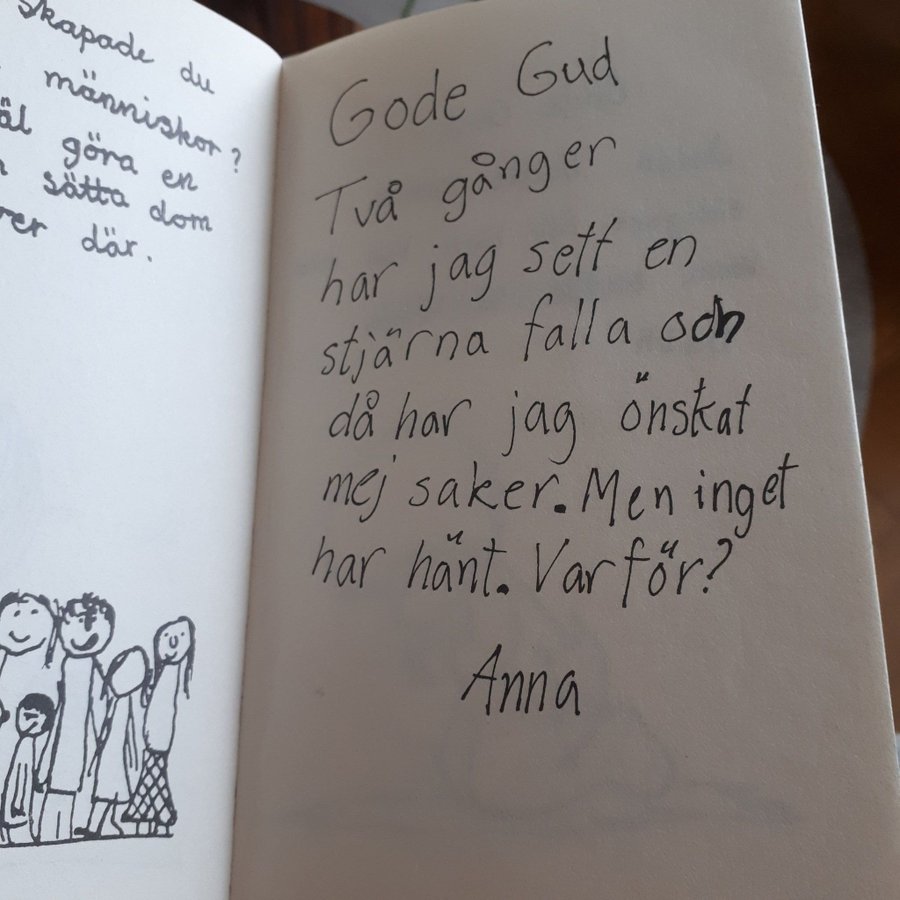 skapade du
människor?
göra en
sätta dom
där.
Gode Gud
Två gånger
har jag sett en
stjärna falla och
då har jag önskat
mej saker. Men inget
har hänt. Varför?
Anna